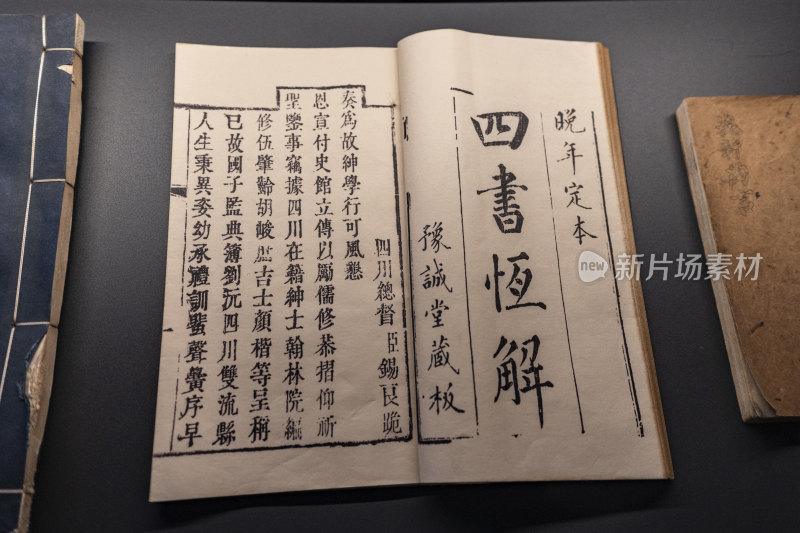 晚年定本
四書恆解
豫誠堂藏板
四川總督臣錫良跪
奏為故紳學行可風懇
恩宣付史館立傳以勵儒修恭摺仰祈
聖鑒事竊據四川在籍紳士翰林院編
修伍肇齡胡峻庶吉士顏楷等呈稱
已故國子監典簿劉沅四川雙流縣
人生秉異姿幼承禮訓蜚聲黌序早
new 新片场素材